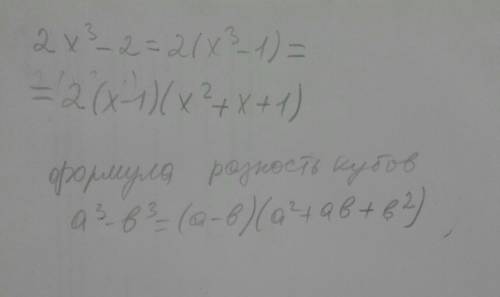 2x³-2=2(x³-1)=
=2(x-1)(x²+x+1)
формула разность кубов
а³-в³=(а-в)(а²+ав+в²)